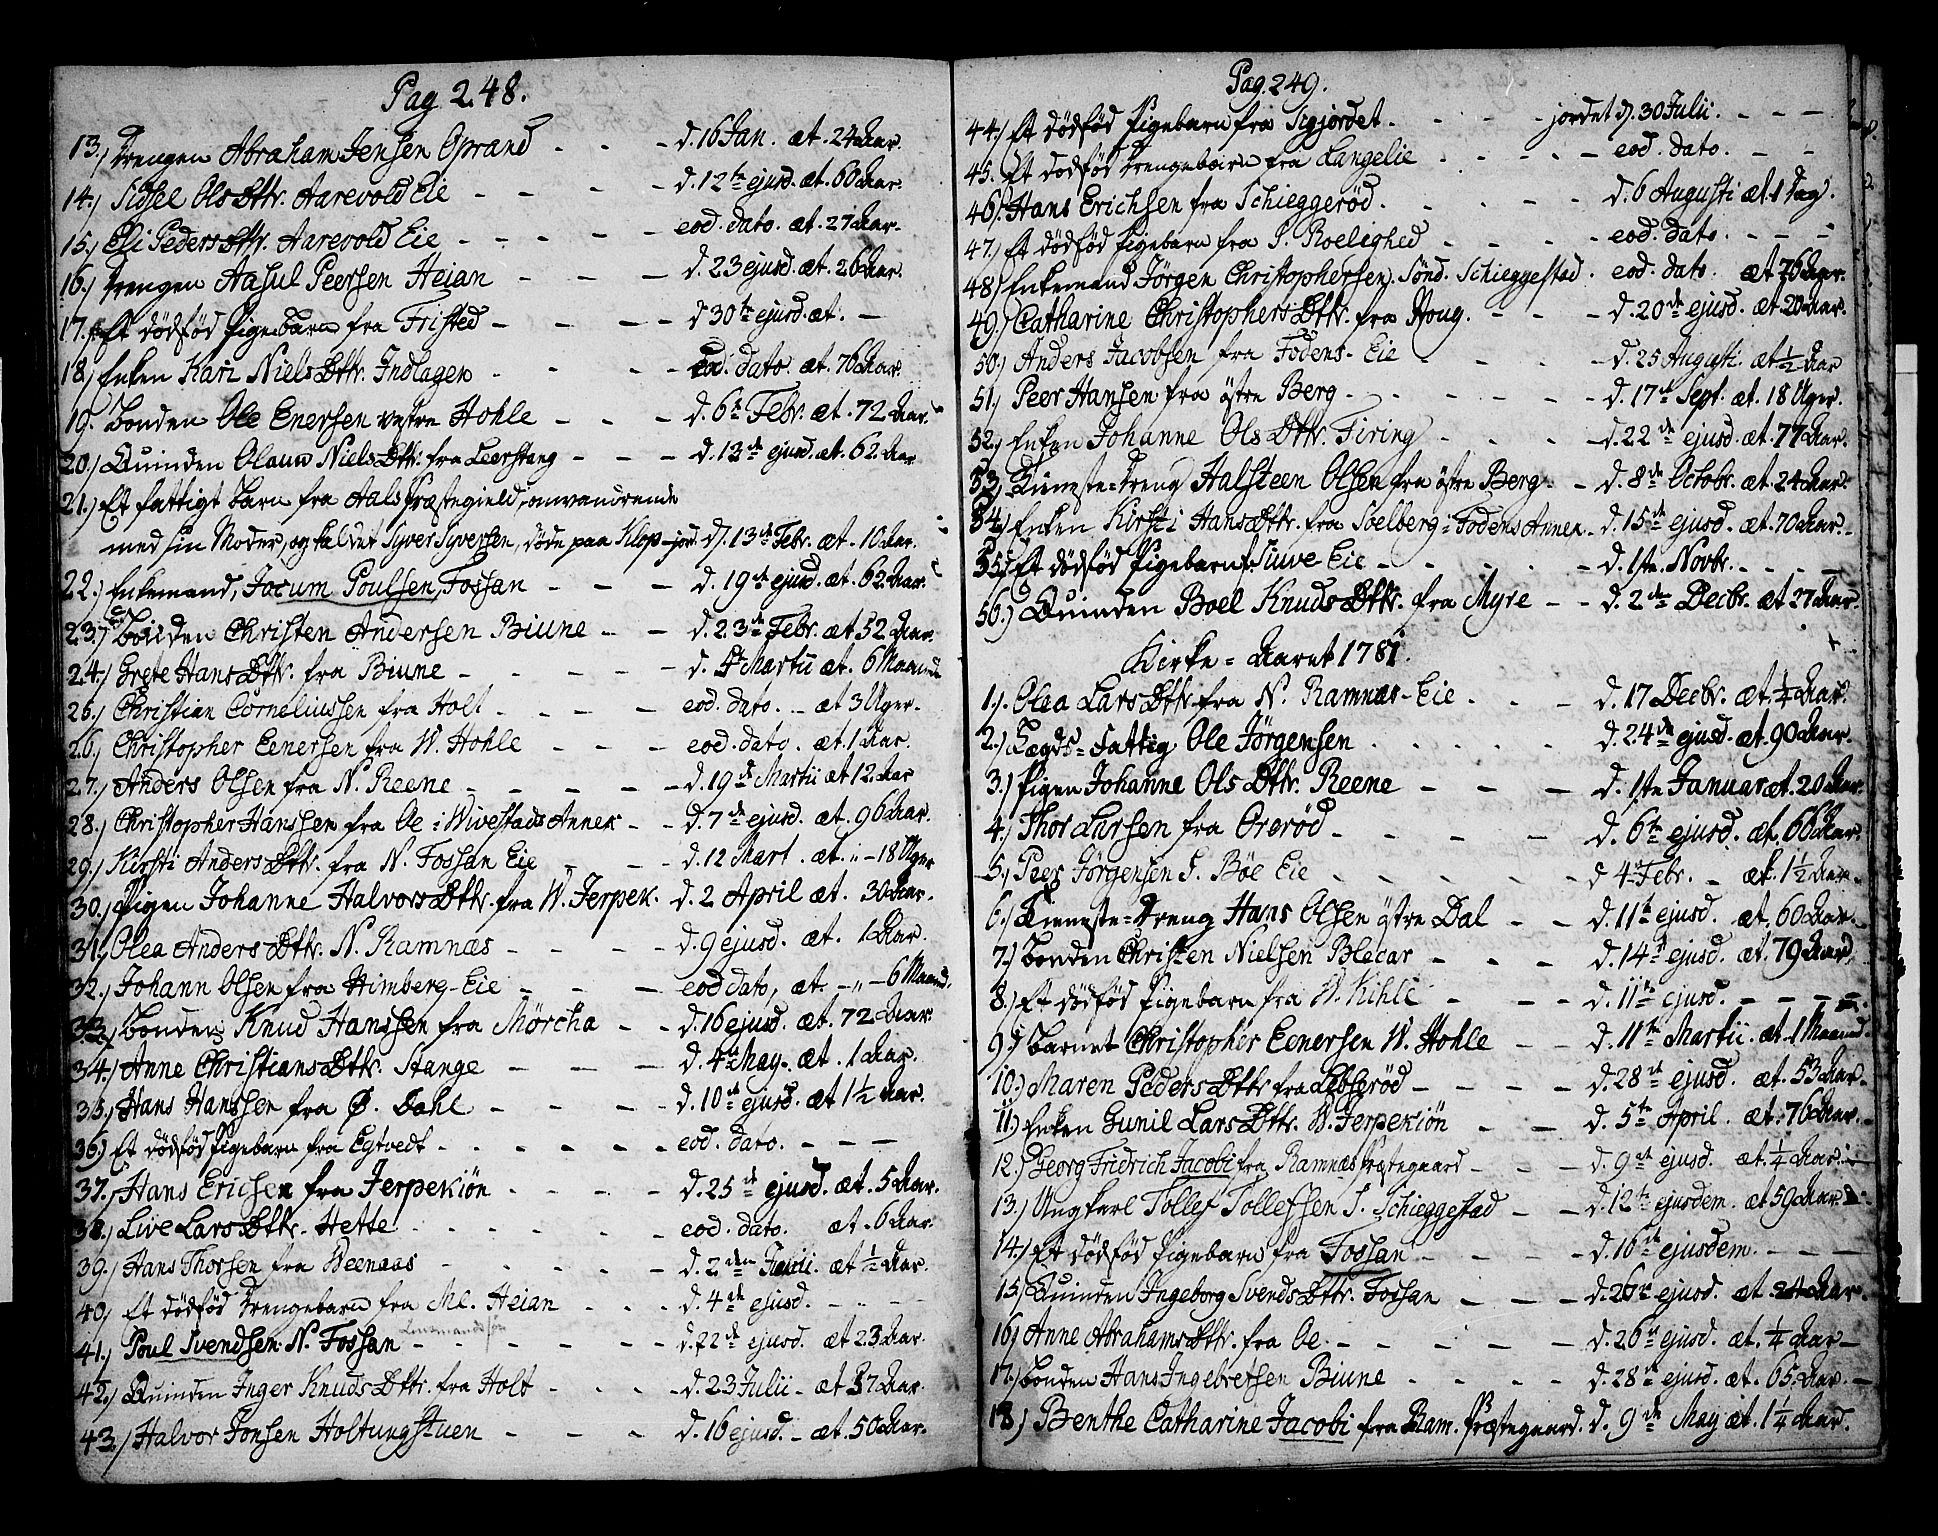 Pag 248.
13.) Drengen Abraham Jensen Oprand - - - d. 16 Jan. æt. 24 Aar.
14.) Sidsel Ols Dttr. Aarevold Eie - - - - d. 12te ejusd. æt. 60 Aar.
15.) Eli Peders Dttr. Aarevold Eie - - - - - eod. dato. æt. 27 Aar.
16.) Drengen Aasul Peersen Heian - - - d. 23 ejusd. æt. 26 Aar.
17. Et dödföd Pigebarn fra Fristed - - - - d 30te ejusd. æt. -
18.) Enken Kari Niels Dttr. Indlagen - - - - eod. dato. æt. 76 Aar.
19. Bonden Ole Enersen vestre Hohle - - - d. 6te Febr. æt. 72 Aar.
20.) Quinden Olaug Niels Dttr. fra Leerstang - - - d. 13de ejusd. æt. 62 Aar
21.) Et fattigt Barn fra Aals Præstegield, omvandrende
med sin Moder, og kaldet Syver Syversen, döde paa Klop-jord. d. 13de Febr. æt. 10 Aar.
22.) Enkemand, Jacum Poulsen, Fossan - - - d. 19de ejusd. æt. 62 Aar.
23.) Bonden Christen Andersen Biune - - d. 23de Febr. æt 52 Aar.
24.) Grete Hans Dttr. fra Biune - - - - d. 4de Martii æt. 6 Maaned
26.) Christian Corneliussen fra Holt - - - - eod. dato. - æt 3 Uger.
26.) Christopher Eenersen fra W. Hohle - - - - eod. dato. æt. 1 Aar.
27.) Anders Olsen fra N. Reene - - - - - d. 19de Martii æt 12 Aar
28.) Christopher Hanssen fra Oe i Wivestads Annex - - d. 7de ejusd. æt. 96 Aar.
29.) Kirsti Anders Dttr. fra N. Fossan Eie - - - d. 12 Mart. æt. " - 18 Uger
30.) Pigen Johanne Halvors Dttr. fra W. Jerpek. d. 2 April æt. 30 Aar.
31.) Olea Anders Dttr. N. Ramnæs - - - - d. 9 ejusd. æt. 1 Aar.
32.) Johann Olsen fra Himberg-Eie - - - eod dato, æt. - " - 6 Maaned.
33.) Bonden Knud Hanssen fra Mörcha - - d. 16 ejusd. æt. 72 Aar.
34.) Anne Christians Dttr. Stange - - - d. 4de May. æt. 1 Aar.
35.) Hans Hanssen fra Ø. Dahl - - - - d. 10de ejusd. æt 1½ Aar.
36.) Et dödföd Pigebarn fra Egtvedt - - - - - - eod. dato. - - -
37.) Hans Ericsen fra Jerpekiön - - - - d. 25de ejusd. æt. 5 Aar.
38.) Live Lars Dttr. Hette - - - - - eod. dato. æt. 6 Aar.
39.) Hans Thorsen fra Weenaas - - - - - d. 2den Junii. æt ½ Aar.
40.) Et dödföd Drengebarn fra Ml. Heian - - - d. 4de ejusd. - - - -
41.) Poul Svendsen N. Fossan - - - - - - d. 22de ejusd æt 23 Aar.
42.) Quinden Inger Knuds Dttr. fra Holt - - - - d. 23 Julii - æt 37 Aar.
43.) Halvor Jonsen Holtungstuen - - - d. 16 ejusd. - æt. 50 Aar.
Pag. 249.
44.) Et dödföd Pigebarn fra Sigjordet. - - - - jordet d. 30 Julii. - - -
45. Et dödföd Drengebarn fra Langelie - - - - - eod. dato. - -
46.) Hans Erichsen fra Schieggeröd. - - - - d. 6 Augusti æt. 1 Dag.
47.) Et dödföd Pigebarn fra S. Roelighed - - - - eod. dato. - - -
48.) Enkemand Jörgen Christophersen. Sönd. Schieggestad. eod. dato. æt 76 Aar.
49.) Catharine Christophers Dttr. fra Houg. - - - d. 20de ejusd. æt. 20 Aar.
50.) Anders Jacobsen fra Fodens-Eie - - - - d. 25 Augusti. æt ½ Aar
51.) Peer Hansen fra östre Berg - - - - - - d. 17de Sept. æt. 18 Uger.
52.) Enken Johanne Ols Dttr. Firing - - - - d. 22de ejusd. æt. 77 Aar.
53.) Tieneste-Dreng Halsteen Olsen fra östre Berg - - d. 8de Octobr. æt. 24 Aar.
54.) Enken Kirsti Hans Dttr. fra Soelberg i Fodens Annex. d. 15de ejusd. æt. 70 Aar. -
55.) Et dödföd Pigebarn f. Tuwe Eie - - - - - d. 1ste. Novbr. - - - -
56.) Quinden Boel Knuds Dttr. fra Myre - - d. 2den Decbr. æt 27 Aar.
Kirke-Aaret 1781.
1.) Olea Lars Dttr fra N. Ramnæs-Eie - - - d. 17 Decbr. æt. ¼ Aar.
2.) Lægds-Fattig Ole Jörgensen - - - - - d. 24de ejusd. æt. 90 Aar.
3.) Pigen Johanne Ols Dttr. Reene - - - d. 1ste Januar æt. 20 Aar.
4.) Thor Larsen fra Oreröd - - - - - d. 6te ejusd. æt. 66 Aar.
5.) Peer Jörgensen S. Böe Eie - - - - - - d 4de Febr. - æt. 1½ Aar.
6.) Tieneste-Dreng Hans Olsen östre Dal - - d. 11te ejusd. æt. 60 Aar.
7.) Bonden Christen Nielsen Blecar - - - d. 14de ejusd. æt. 79 Aar.
8.) Et dödföd Pigebarn fra W. Kihle - - - d. 11te ejusd. - - - -
9.) Barnet Christopher Eenersen W. Hohle - - d. 11te Martii. æt. 1 Maaned.
10.) Maren Peders Dttr fra Lebseröd - - - - d. 28de ejusd. æt. 53 Aar.
11.) Enken Gunil Lars Dttr. W. Jerpekiön - - d. 5te April. æt. 76 Aar.
12.) Georg Fridrich Jacobi fra Ramnæs Præstegaard - - - d. 9de ejusd. æt. ¼ Aar.
13.) Ungkarl Tollef Tollefsen S. Schieggestad - - d. 12te ejusdem. æt 59 Aar.
14.) Et dödföd Pigebarn fra Fossan - - - - d. 16de ejusdem. - - -
15.) Quinden Ingeborg Svends Dttr. Fossan - - - d. 26de ejusd. æt. 24 Aar.
16.) Anne Abrahams Dttr. fra Oe - - - - - d. 26de ejusd. æt. ¼ Aar -
17.) Bonden Hans Ingebretsen Biune - - - - d. 28de ejusd. æt. 65 Aar. -
18.) Benthe Catharine Jacobi fra Ram. Præstegaard. d. 9de May æt. 1¼ Aar.